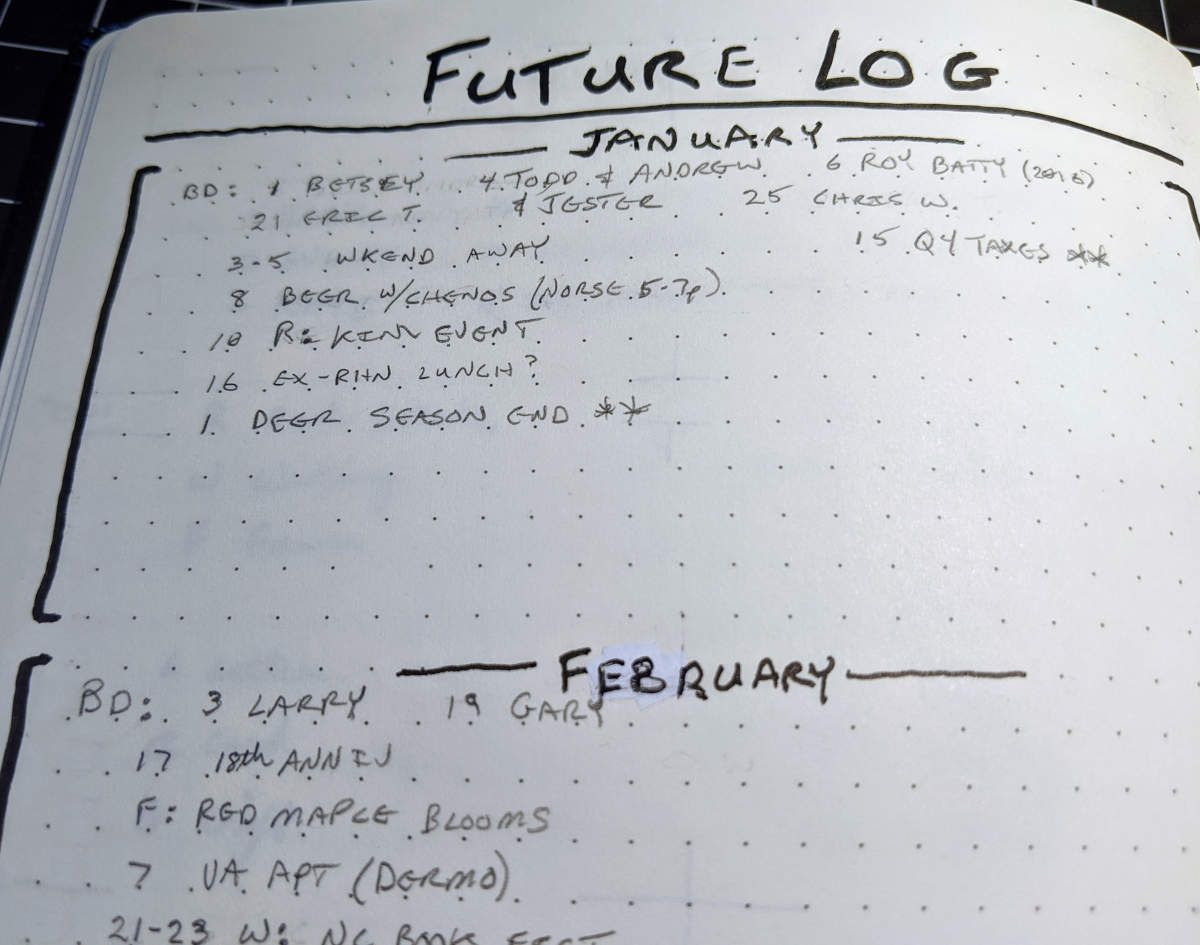 FUTURE LOG
JANUARY
BD: 1 BETSEY 4 TODD & ANDREW 6 ROY BATTY (2016)
21 ERIC T. & JESTER 25 CHRIS W.
3-5 WKEND AWAY 15 Q4 TAXES **
8 BEER W/CHENDS (NORSE 5-7p)
10 R: KINN EVENT
16 EX-RHN LUNCH?
1 DEER SEASON END **
FEBRUARY
BD: 3 LARRY 19 GARY
17 18th ANNIV
F: RED MAPLE BLOOMS
7 VA APT (DERMO)
21-23 W: NC BOOK FEST